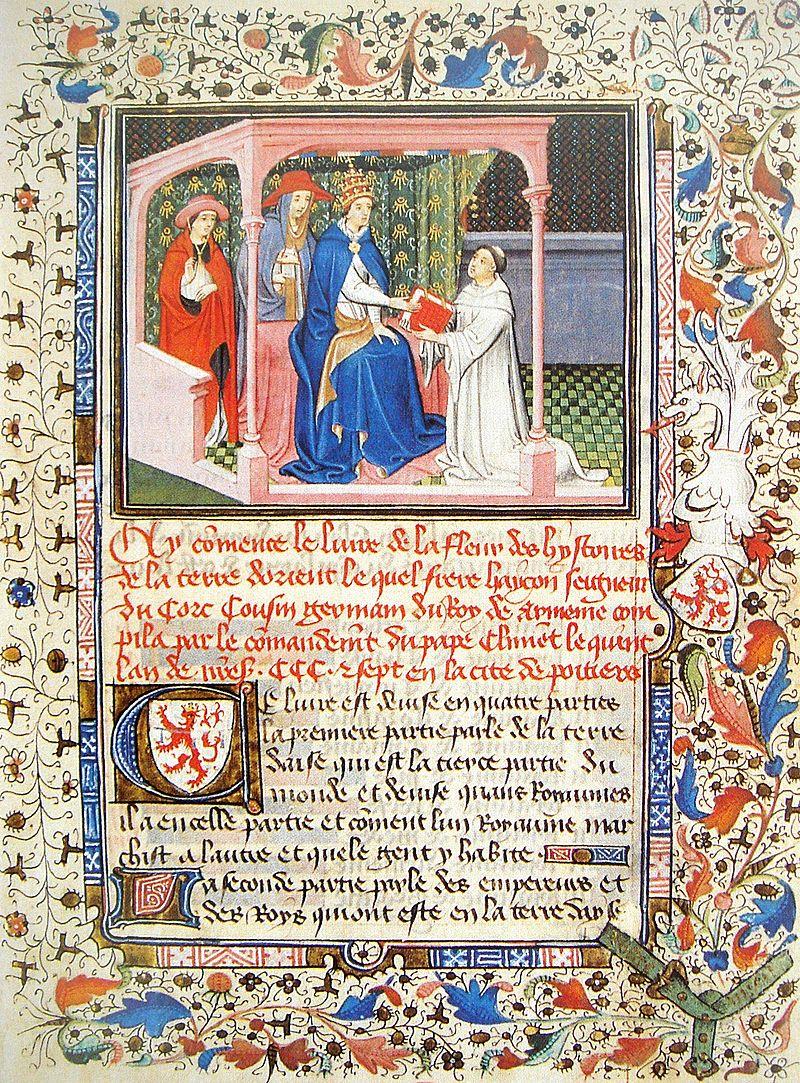 Cy cõmence le livre de la fleur des hystoires
de la terre dorient le quel frere hayton seigneur
du Corc Cousin germain du Roy de armenie com
pila par le cõmandemẽt du pape Climẽt le quint
lan de nrẽs. CCC. & sept en la cite de poitiers
Ce livre est devise en quatre parties
la premiere partie parle de la terre
daise qui est la tierce partie du
monde et devise quans Royaumes
il a en celle partie et cõment lun Royaume mar
chist a lautre et quele gent y habite
La seconde partie parle des empereurs et
des Roys qui ont este en la terre dayse